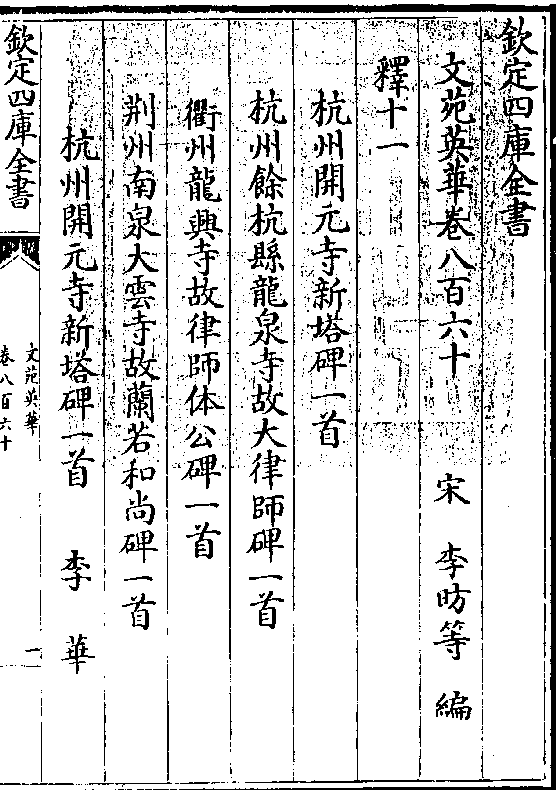 欽定四庫全書
文苑英華卷八百六十
宋 李昉等 編
釋十一
杭州開元寺新塔碑一首
杭州餘杭縣龍泉寺故大律師碑一首
衢州龍興寺故律師体公碑一首
荆州南泉大雲寺故蘭若和尚碑一首
杭州開元寺新塔碑一首 李華
欽定四庫全書
文苑英華
卷八百六十
一